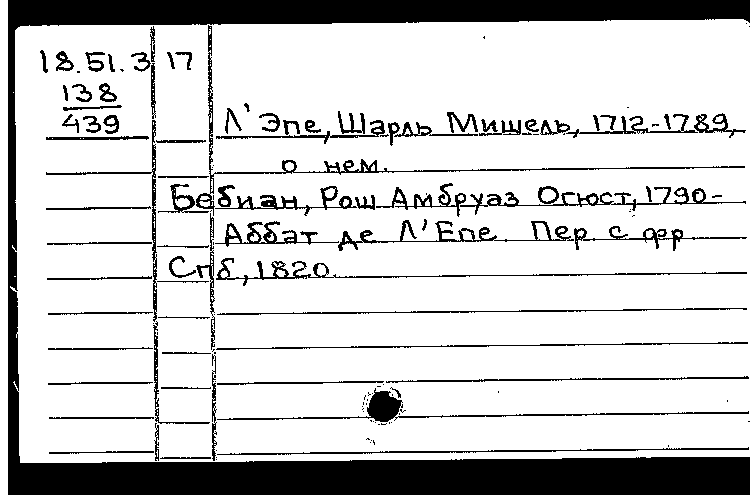 18.51.3 17
138
439
Л'Эпе, Шарль Мишель, 1712-1789,
о нем.
Бебиан, Рош Амбруаз Огюст, 1790-
Аббат де Л'Епе. Пер. с фр.
Спб, 1820.